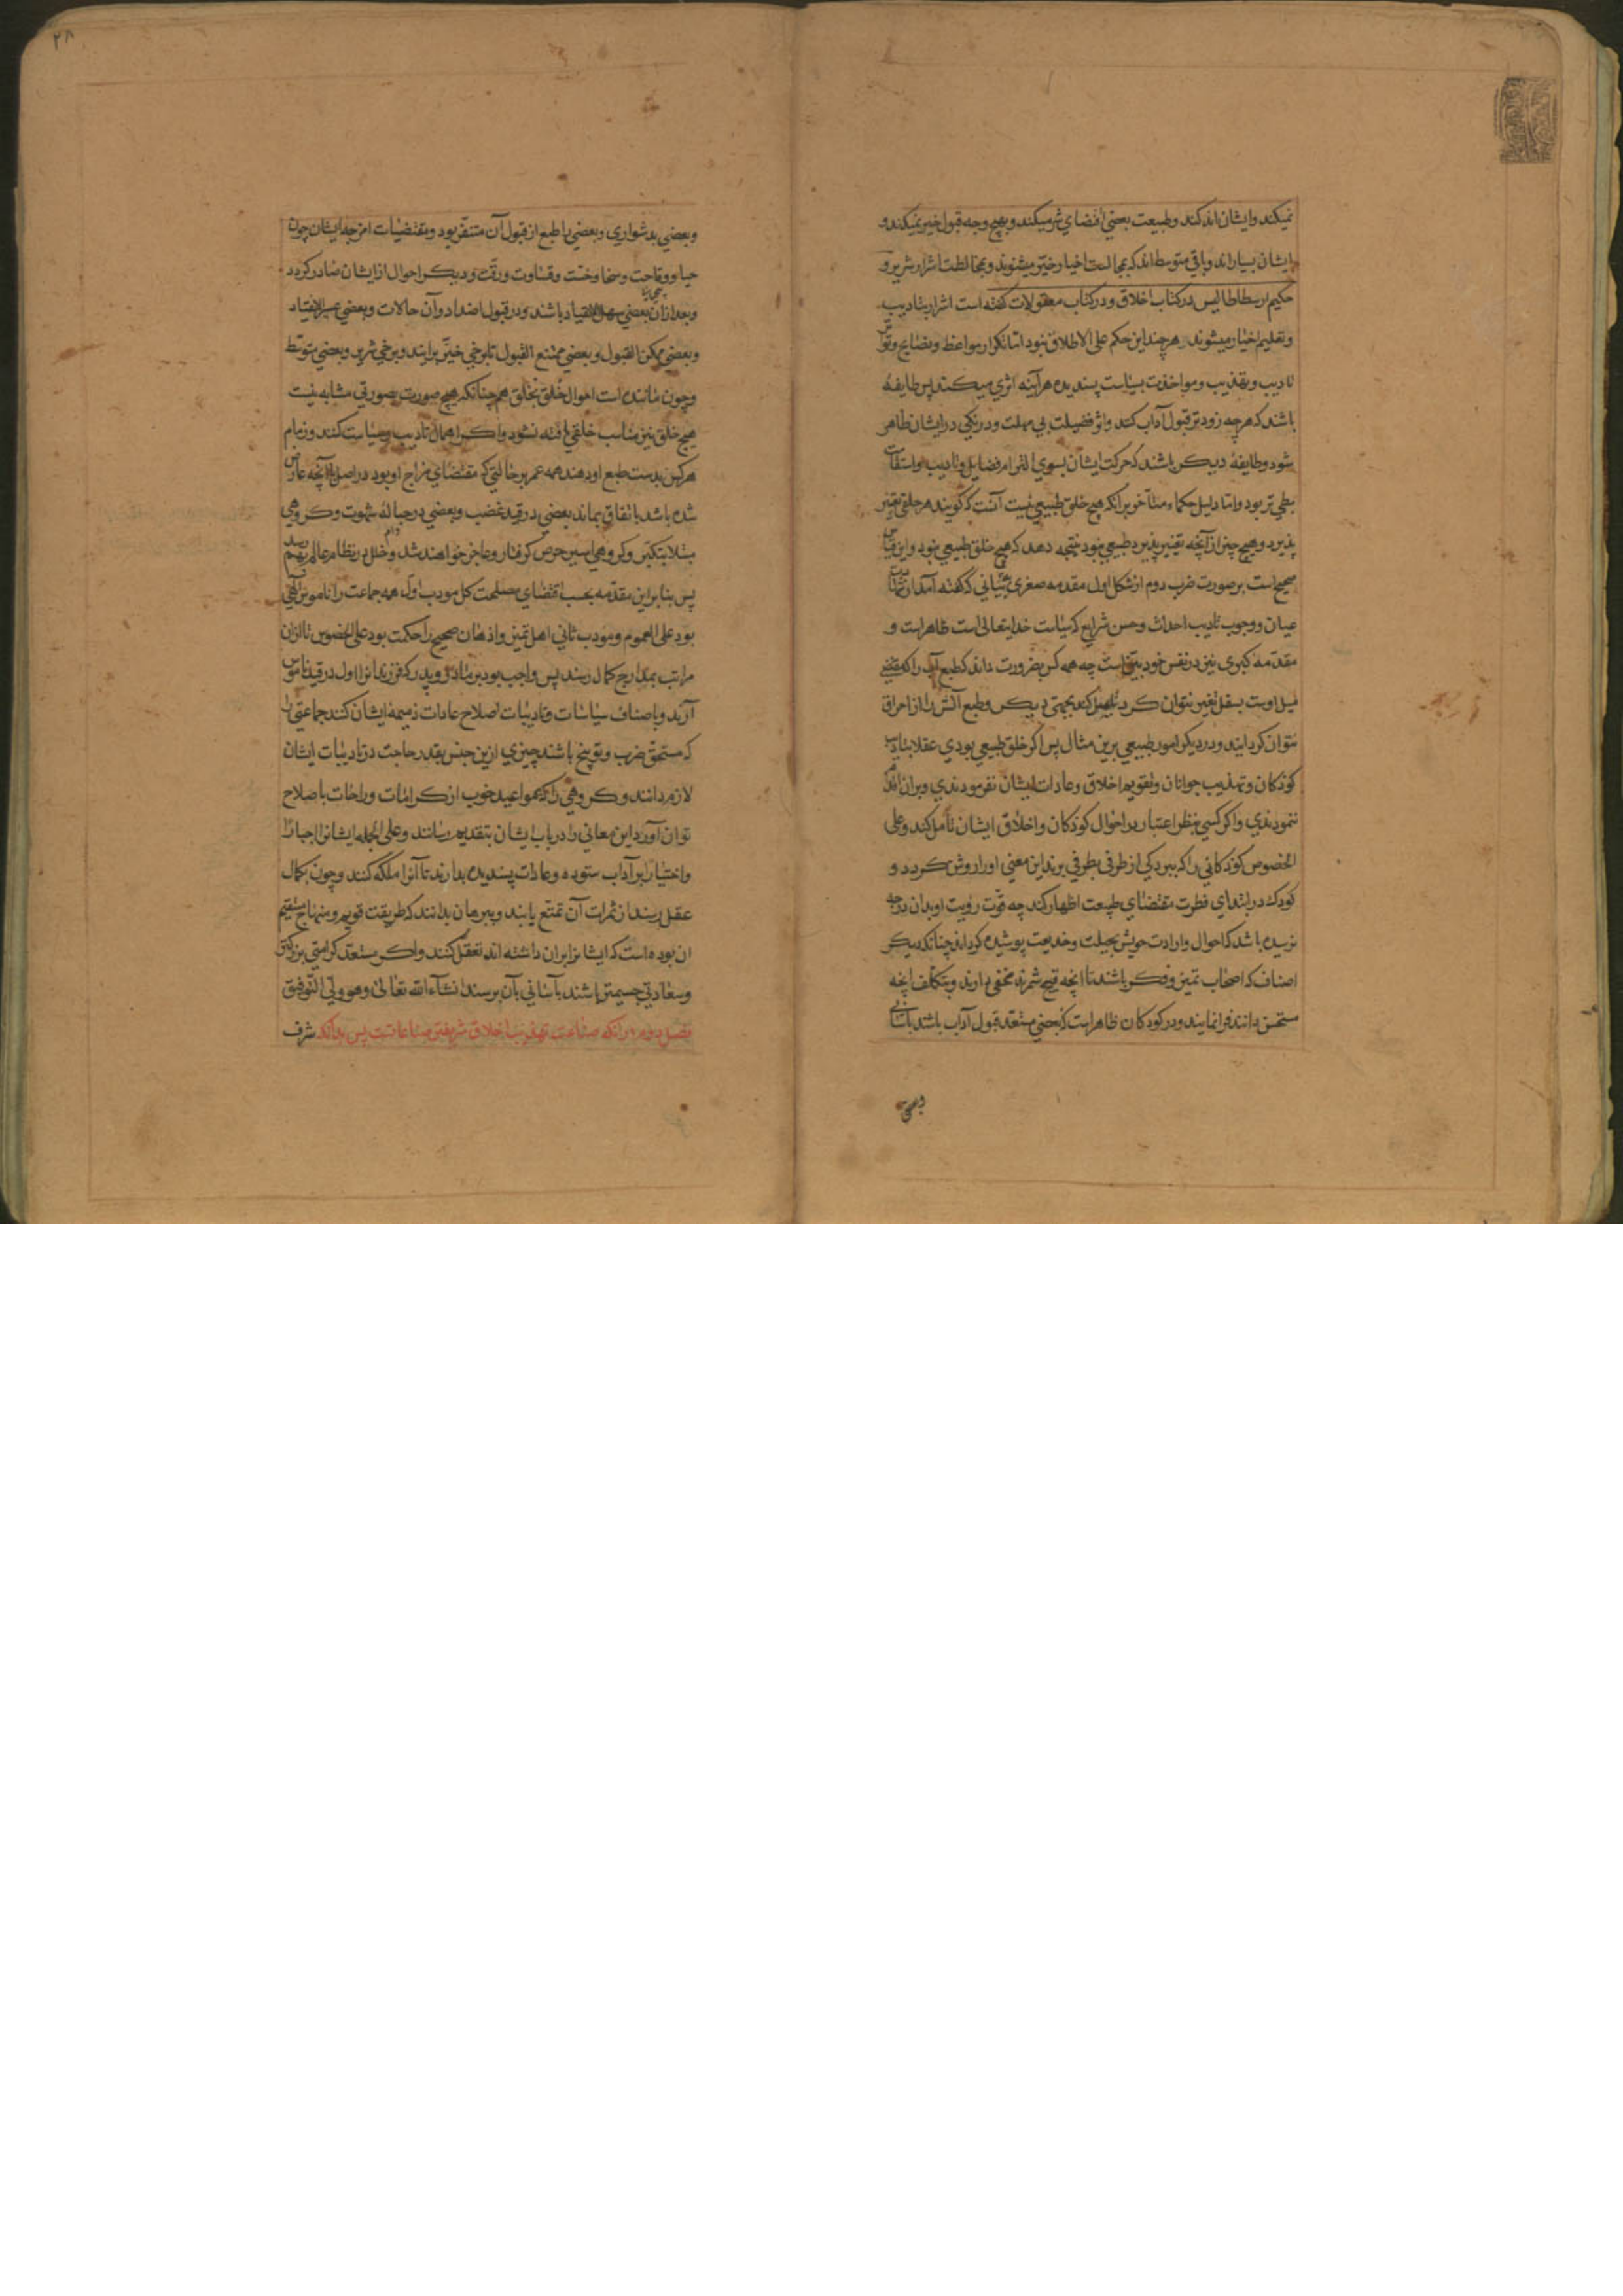 نمیکند وایشان اندکند وطبیعت بعضی اقتضای شر میکند وبهیچ وجه قبول خیر نمیکند و
ایشان بسیار اند وباقی متوسط اند که بمجالست اخیار خیّر میشوند وبمخالطت اشرار شریر و
حکیم ارسطاطالیس در کتاب اخلاق ودر کتاب مقولات گفته است اشرار بتادیب
وتعلیم اخیار میشوند هر چند این حکم علی الاطلاق نبود اما تکرار مواعظ ونصایح وتواتر
تادیب وتهذیب ومواخذت بسیاست پسندیده هر آینه اثری میکند پس طایفهٔ
باشند که هر چه زودتر قبول آداب کنند واثر فضیلت بی مهلت ودرنگی در ایشان ظاهر
شود وطایفهٔ دیکر باشند که حرکت ایشان بسوی التزام فضایل وتادیب واستقامت
بطی تر بود واما دلیل حکماء متأخر برانکه هیچ خلق طبیعی نیست آنست که گویند هر خلقی تغییر
پذیرد وهیچ چیز از آنچه تغییر پذیرد طبیعی نبود نتیجه دهد که هیچ خلق طبیعی نبود واین قیاس
صحیح است بر صورت ضرب دوم از شکل اول مقدمه صغری بیانی که گفته آمد از شهادت
عیان ووجوب تادیب احداث وحسن شرایع که سیاست خدایتعالی است ظاهر است و
مقدمه کبری نیز در نفس خود بیّن است چه همه کس بضرورت داند که طبع آب را که مقتضی
میل اوست بسفل تغییر نتوان کرد تا میل کند بجهتی دیکر وطبع آتش را از احراق
نتوان گردانید ودر دیکر امور طبیعی برین مثال پس اگر خلق طبیعی بودی عقلا بتادیب
کودکان وتهذیب جوانان وتقویم اخلاق وعادات ایشان نفرمودندی وبران اقدام
ننمودندی واکر کسی بنظر اعتبار در احوال کودکان واخلاق ایشان تأمل کند وعلی
الخصوص کودکانی را که ببردگی از طرفی بطرفی برند این معنی اورا روشن کردد و
کودک در ابتدای فطرت مقتضای طبیعت اظهار کند چه قوّت رویت او بدان درجه
نرسیده باشد که احوال وارادت خویش بحیلت وخدیعت پوشیده گرداند چنانکه دیکر
اصناف که اصحاب تمییز وفکر باشند تا انچه قبیح شمرند مخفی دارند وبتکلف انچه
مستحسن دانند فرا نمایند ودر کودکان ظاهر است که بعضی مستعد قبول آداب باشند بآسانی
وبعضی
۲۸
وبعضی بدشواری وبعضی باطبع از قبول آن متنفر بود ومقتضیات امزجه ایشان چون
حیا ووقاحت وسخا وخسّت وقساوت ورقّت ودیکر احوال از ایشان صادر کردد
وبعد ازان بعضی سهل الانقیاد باشند ودر قبول اضداد آن حالات وبعضی عسر الانقیاد
وبعضی ممکن القبول وبعضی ممتنع القبول تا برخی خیّر برایند وبرخی شریر وبعضی متوسّط
وچون مانند است احوال خلق بخلق هم چنانکه هیچ صورت بصورتی مشابه نیست
هیچ خلق نیز مناسب خلقی یافته نشود واکر اهمال تادیب وسیاست کنند وزمام
هر کس بدست طبع او دهند همه عمر بر حالتی که مقتضای مزاج او بود در اصل یا آنچه عارض
شده باشد باتفاق بماند بعضی در قید غضب وبعضی در حباله شهوت وکروهی
مبتلا بتکبّر وگروهی اسیر حرص گرفتار وعاجز خواهند شد وخلل در نظام عالم بهم رسد
پس بنابراین مقدّمه بحسب اقتضای مصلحت کل مودب اول همه جماعت را ناموس الهی
بود علی العموم ومودب ثانی اهل تمییز واذهان صحیح را حکمت بود علی الخصوص تا ازان
مراتب بمدارج کمال رسند پس واجب بود بر مادر وپدر که فرزندانرا اول در قید ناموس
آرند وباصناف سیاسات وتادیبات اصلاح عادات ذمیمه ایشان کنند جماعتی را
که مستحق ضرب وتوبیخ باشند چیزی ازین جنس بقدر حاجت در تادیبات ایشان
لازم دانند وکروهی را که بمواعید خوب از کرامات وراحات باصلاح
توان آورد این معانی را در باب ایشان بتقدیم رسانند وعلی الجمله ایشانرا اجبارا
واختیارا بر آداب ستوده وعادات پسندیده بدارند تا آنرا ملکه کنند وچون بکمال
عقل رسند از ثمرات آن تمتع یابند وببرهان بدانند که طریقت قویم ومنهاج مستقیم
ان بوده است که ایشانرا بران داشته اند تعقل کنند واکر مستعد کرامتی بزرگتر
وسعادتی جسیمتر باشند بآسانی بآن برسند انشآءالله تعالی وهو ولیّ التوفیق
فصل دوم درانکه صناعت تهذیب اخلاق شریفتر صناعاتست پس بدانکه شرف